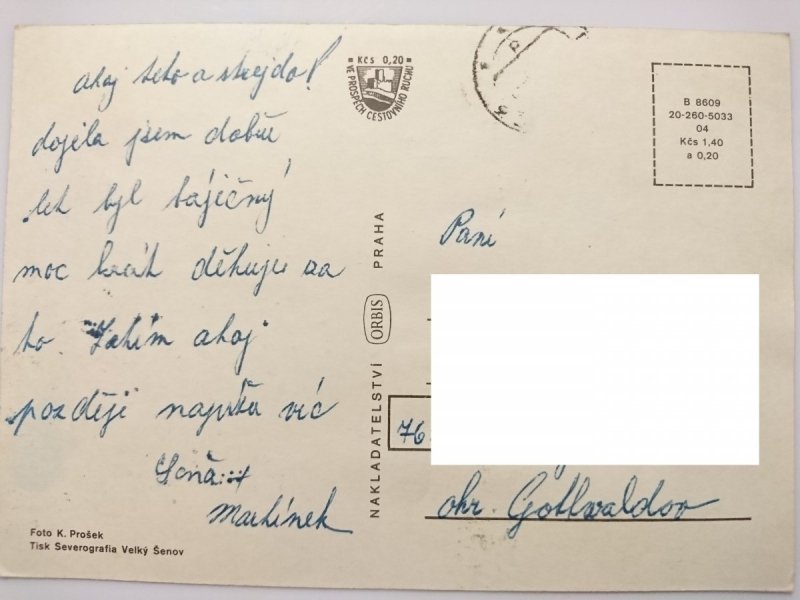 ahoj teto a strejdo!
dojela jsem dobře
let byl báječný
moc krát děkuju za
to Zatím ahoj
později napíšu víc
Martínek
Foto K. Prošek
Tisk Severografia Velký Šenov
Kčs 0,20
VE PROSPĚCH CESTOVNÍHO RUCHU
NAKLADATELSTVÍ ORBIS PRAHA
B 8609
20-260-5033
04
Kčs 1,40
a 0,20
Paní
76
okr. Gottwaldov